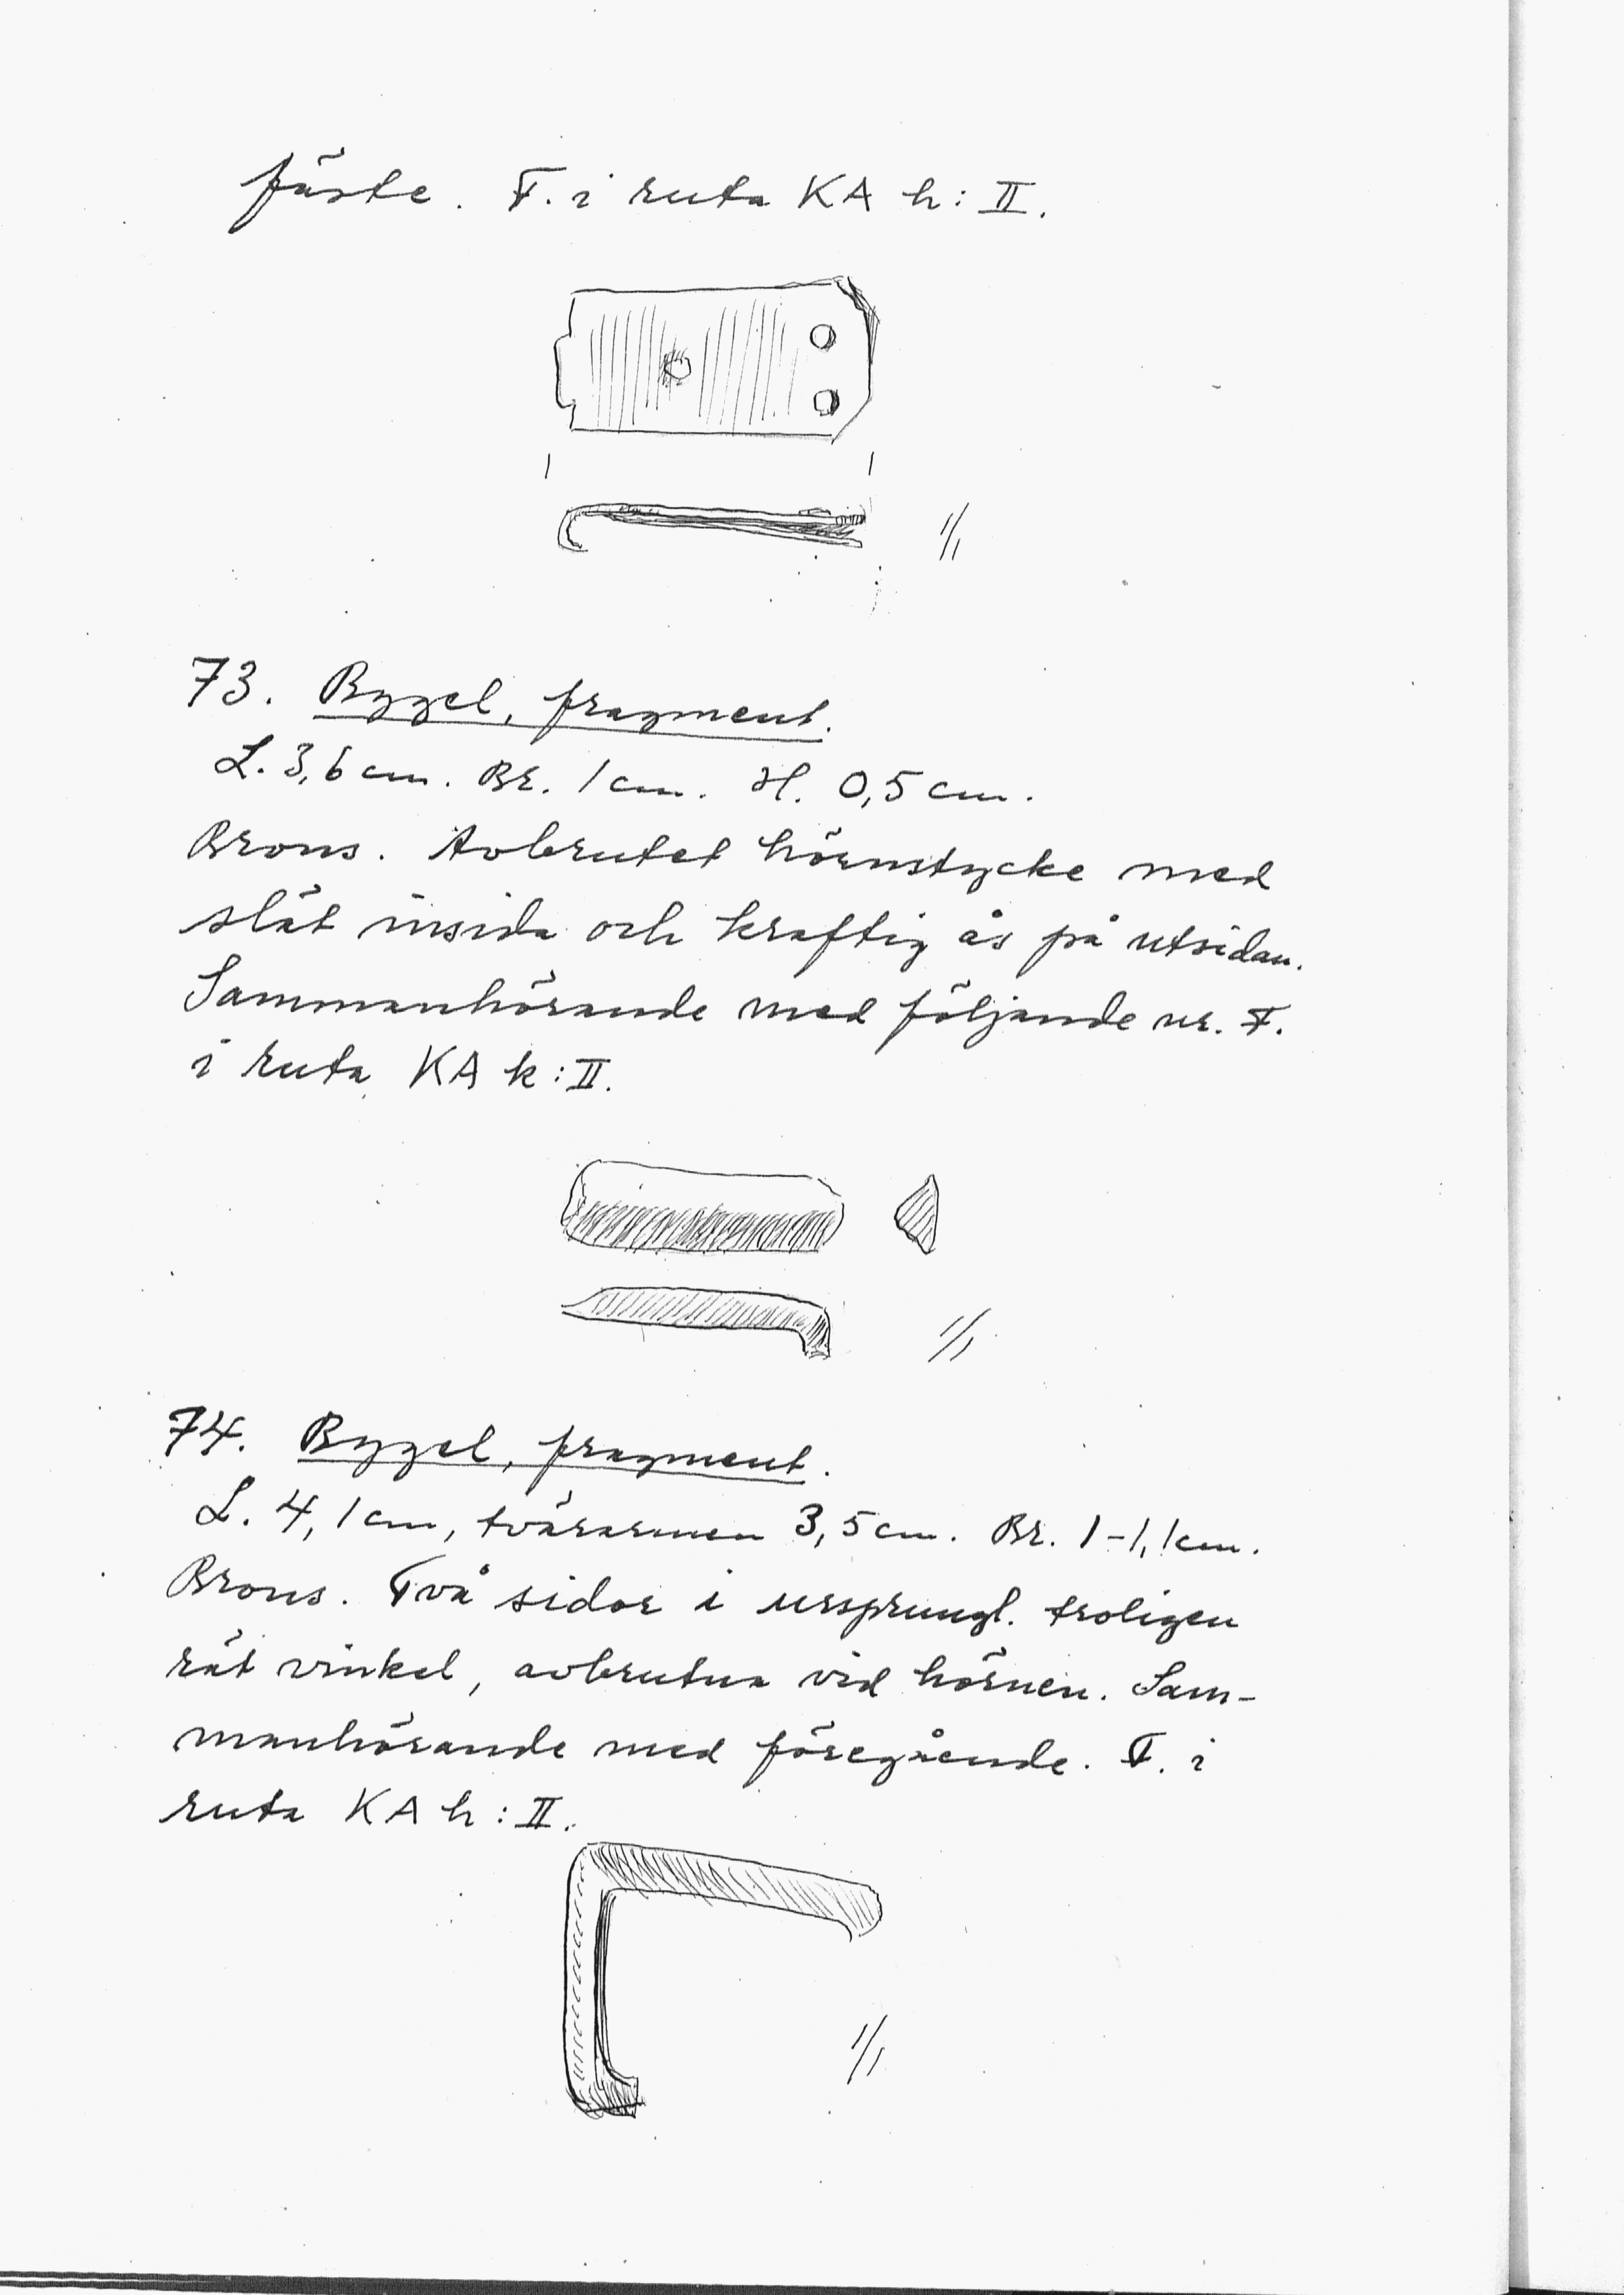 fäste. F. i ruta KA h: II.
1/1
73. Bygel, fragment.
L. 3,6 cm. Br. 1 cm. H. 0,5 cm.
Brons. Avbrutet hörnstycke med
slät insida och kraftig ås på utsidan.
Sammanhörande med följande nr. F.
i ruta KA k: II.
1/1
74. Bygel, fragment.
L. 4,1 cm, tvärarmen 3,5 cm. Br. 1-1,1 cm.
Brons. Två sidor i ursprungl. troligen
rät vinkel, avbrutna vid hörnen. Sam-
manhörande med föregående. F. i
ruta KA h: II.
1/1